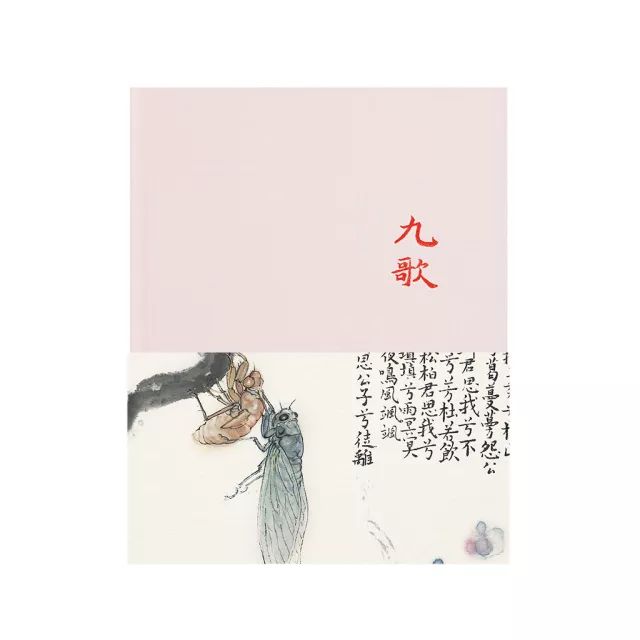 九
歌
葛蔓蔓怨公
君思我兮不
兮芳杜若飲
松柏君思我兮
填填兮雨冥冥
夜鳴風颯颯
思公子兮徒離